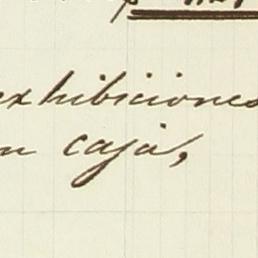 exhibiciones
en caja,